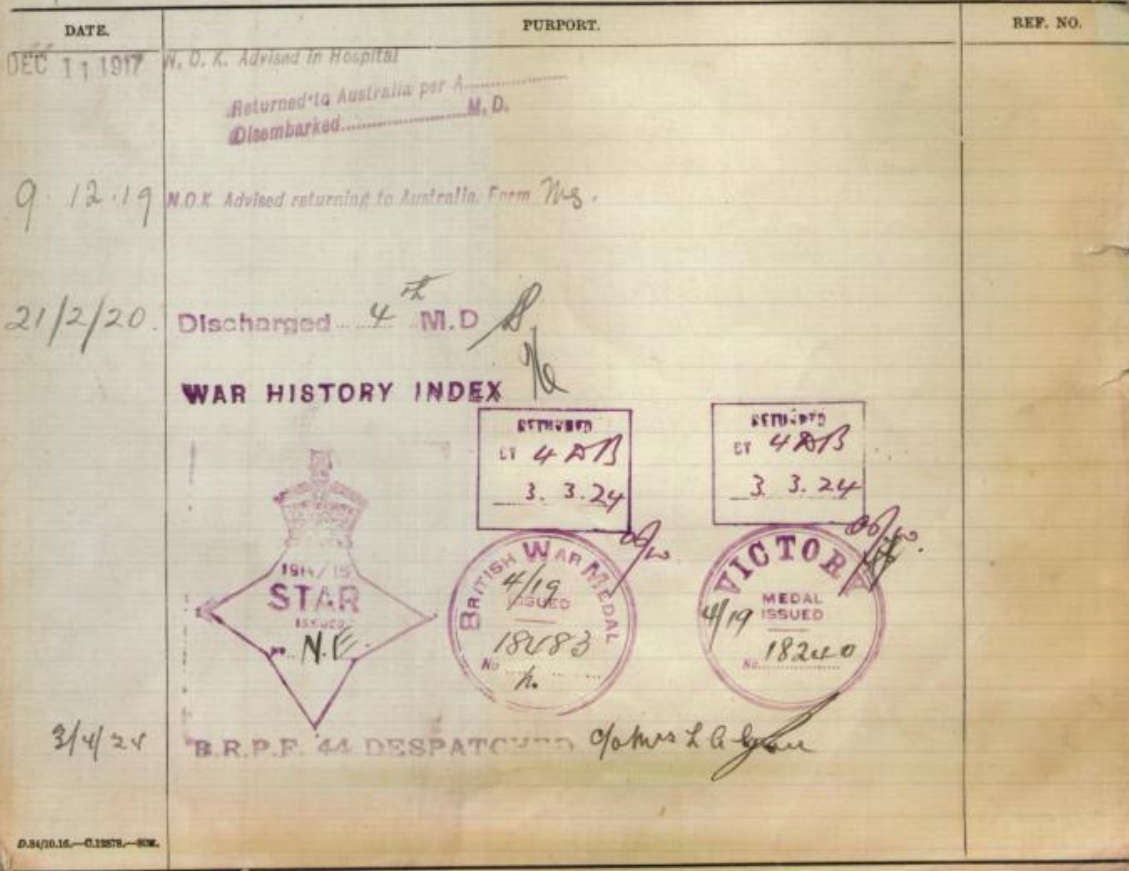 DATE. PURPORT. REF. NO.
DEC 11 1917 N.O.K. Advised in Hospital
Returned to Australia per A
Disembarked M.D.
9.12.19 N.O.K Advised returning to Australia. Form
21/2/20. Discharged 4th M.D
WAR HISTORY INDEX
RETURNED
BY 4 DB
3.3.24
RETURNED
BY 4 DB
3 3.24
1914/15
STAR
ISSUED
No. N.E.
BRITISH WAR MEDAL
4/19
ISSUED
18483
No
VICTORY
MEDAL
4/19 ISSUED
No. 18240
3/4/24 B.R.P.F. 44 DESPATCHED c/o Mrs L A
D.84/10.16.—C.12878.—50M.